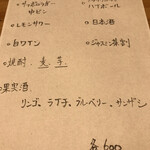 サッポロラガー
中ビン
ハイボール
◦レモンサワー
◦日本酒
◦白ワイン
◦ジャスミン茶割
◦焼酎・麦 芋
◦果実酒
リンゴ、ライチ、ブルーベリー、サンザシ
各600